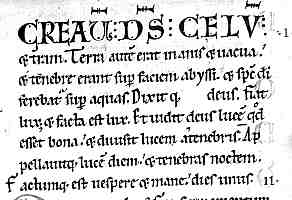 CREAU̅: D̅S: CELU̅:
& trim. Terra aute̅ erat inanis & uacua.
& tenebre erant sup̱ faciem abyssi. & sp̅s di̅
ferebat᷑ sup̱ aquas. Dixit q̨ deus. fiat
lux. & facta est lux. Et uidit deus luce̅ qd̅
esset bona. & diuisit lucem a tenebris. Ap
pellauitq; luce̅ diem. & tenebras noctem.
factumq; est uespere & mane. dies unus. II.